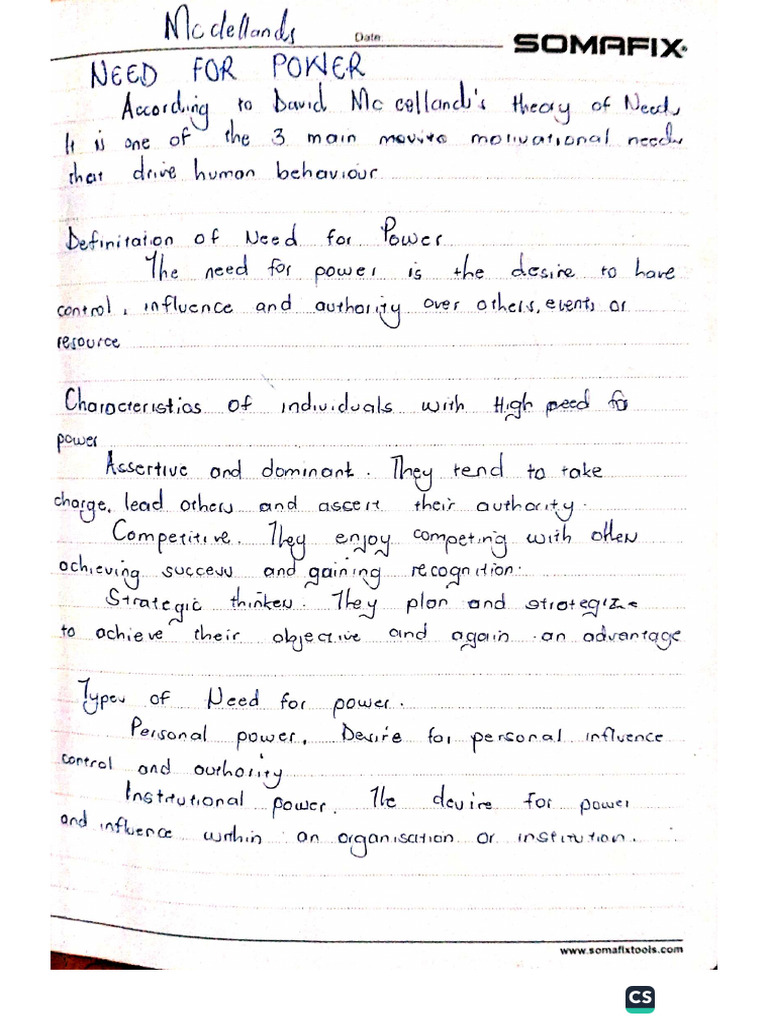 Mcclellands
Date:
SOMAFIX
NEED FOR POWER
According to David Mc cellands's theory of Needs
It is one of the 3 main motivational needs
that drive human behaviour
Definitation of Need for Power
The need for power is the desire to have
control, influence and authority over others, events or
resource
Characteristics of individuals with High need for
power
Assertive and dominant. They tend to take
charge, lead others and assert their authority.
Competitive. They enjoy competing with others
achieving success and gaining recognition.
Strategic thinkers. They plan and strategize
to achieve their objective and again an advantage
Types of Need for power.
Personal power. Desire for personal influence
control and authority
Institutional power. The desire for power
and influence within an organisation or institution.
www.somafixtools.com
CS